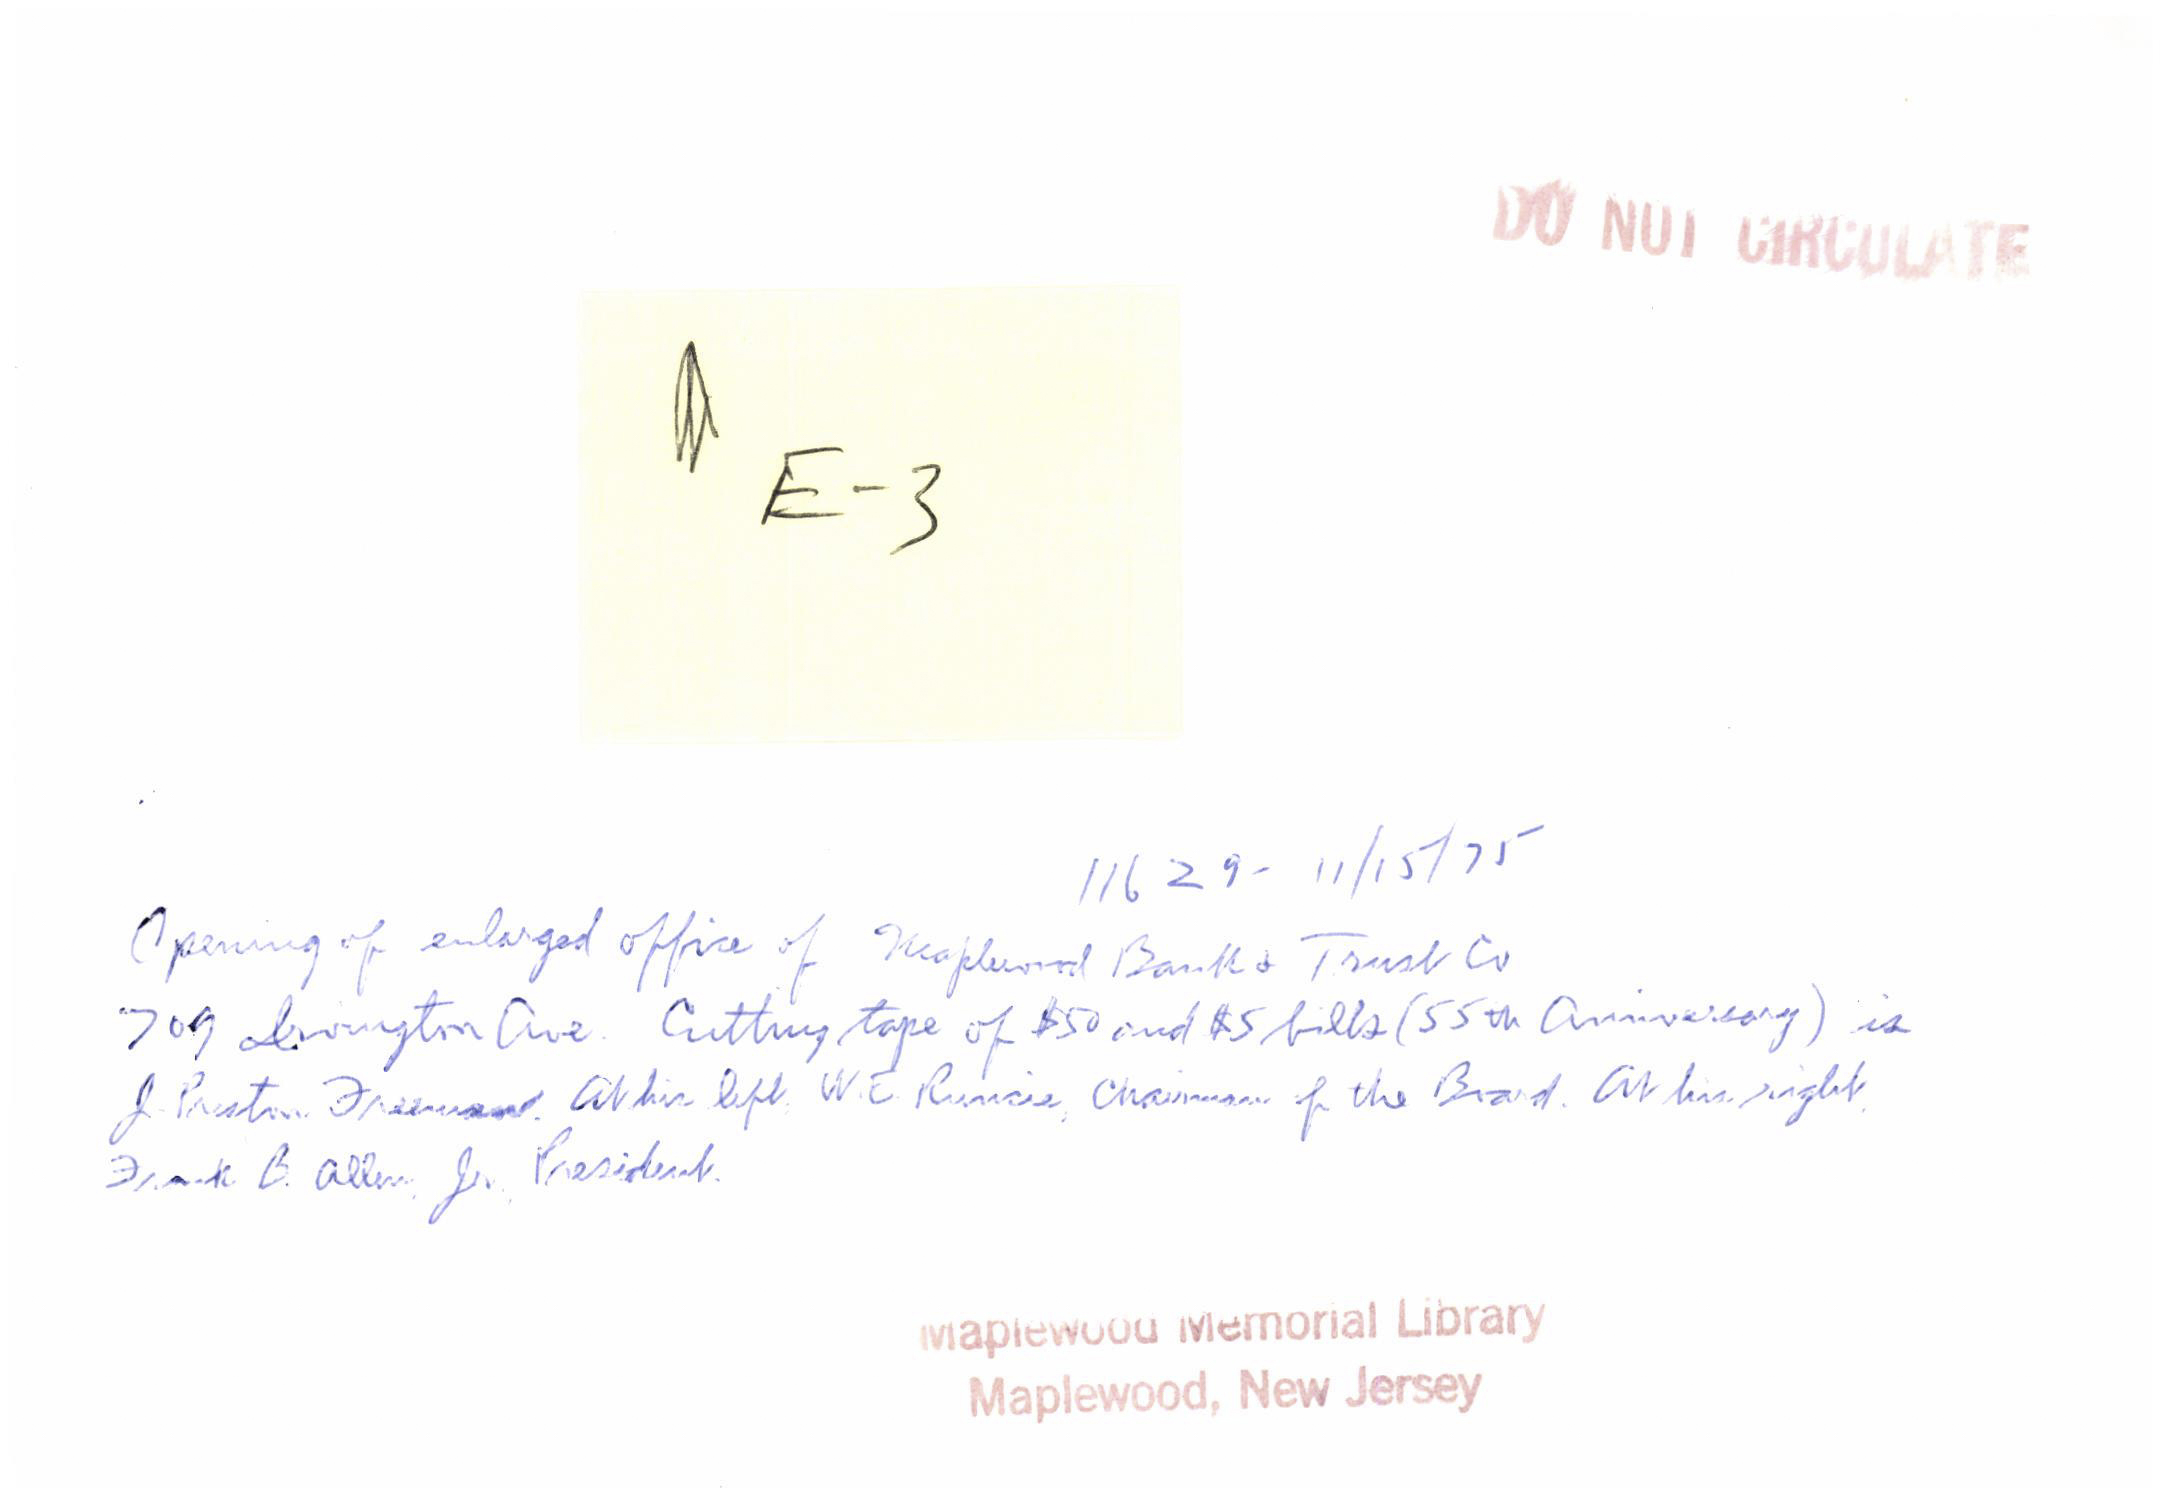 DO NOT CIRCULATE
E-3
11629- 11/15/75
Opening of enlarged office of Maplewood Bank & Trust Co
709 Irvington Ave. Cutting tape of $50 and $5 bills (55th Anniversary) is
J. Preston Freeman. At his left, W.E. Runcie, Chairman of the Board. At his right,
Frank B. Allen, Jr., President.
Maplewood Memorial Library
Maplewood, New Jersey